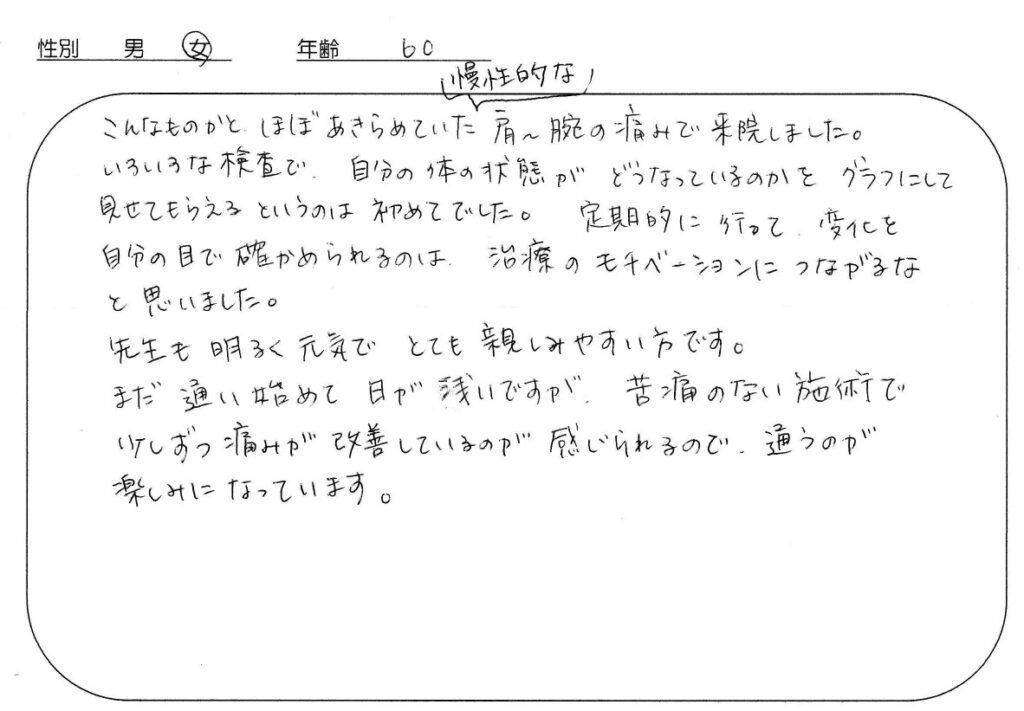 性別 男 女 年齢 60
慢性的な
こんなものかと、ほぼあきらめていた 肩～腕の痛みで来院しました。
いろいろな検査で、自分の体の状態が どうなっているのかを グラフにして
見せてもらえるというのは 初めてでした。 定期的に行って、変化を
自分の目で確かめられるのは、治療のモチベーションにつながるな
と思いました。
先生も明るく元気で とても親しみやすい方です。
まだ通い始めて 日が浅いですが、苦痛のない施術で
少しずつ痛みが改善しているのが感じられるので、通うのが
楽しみになっています。